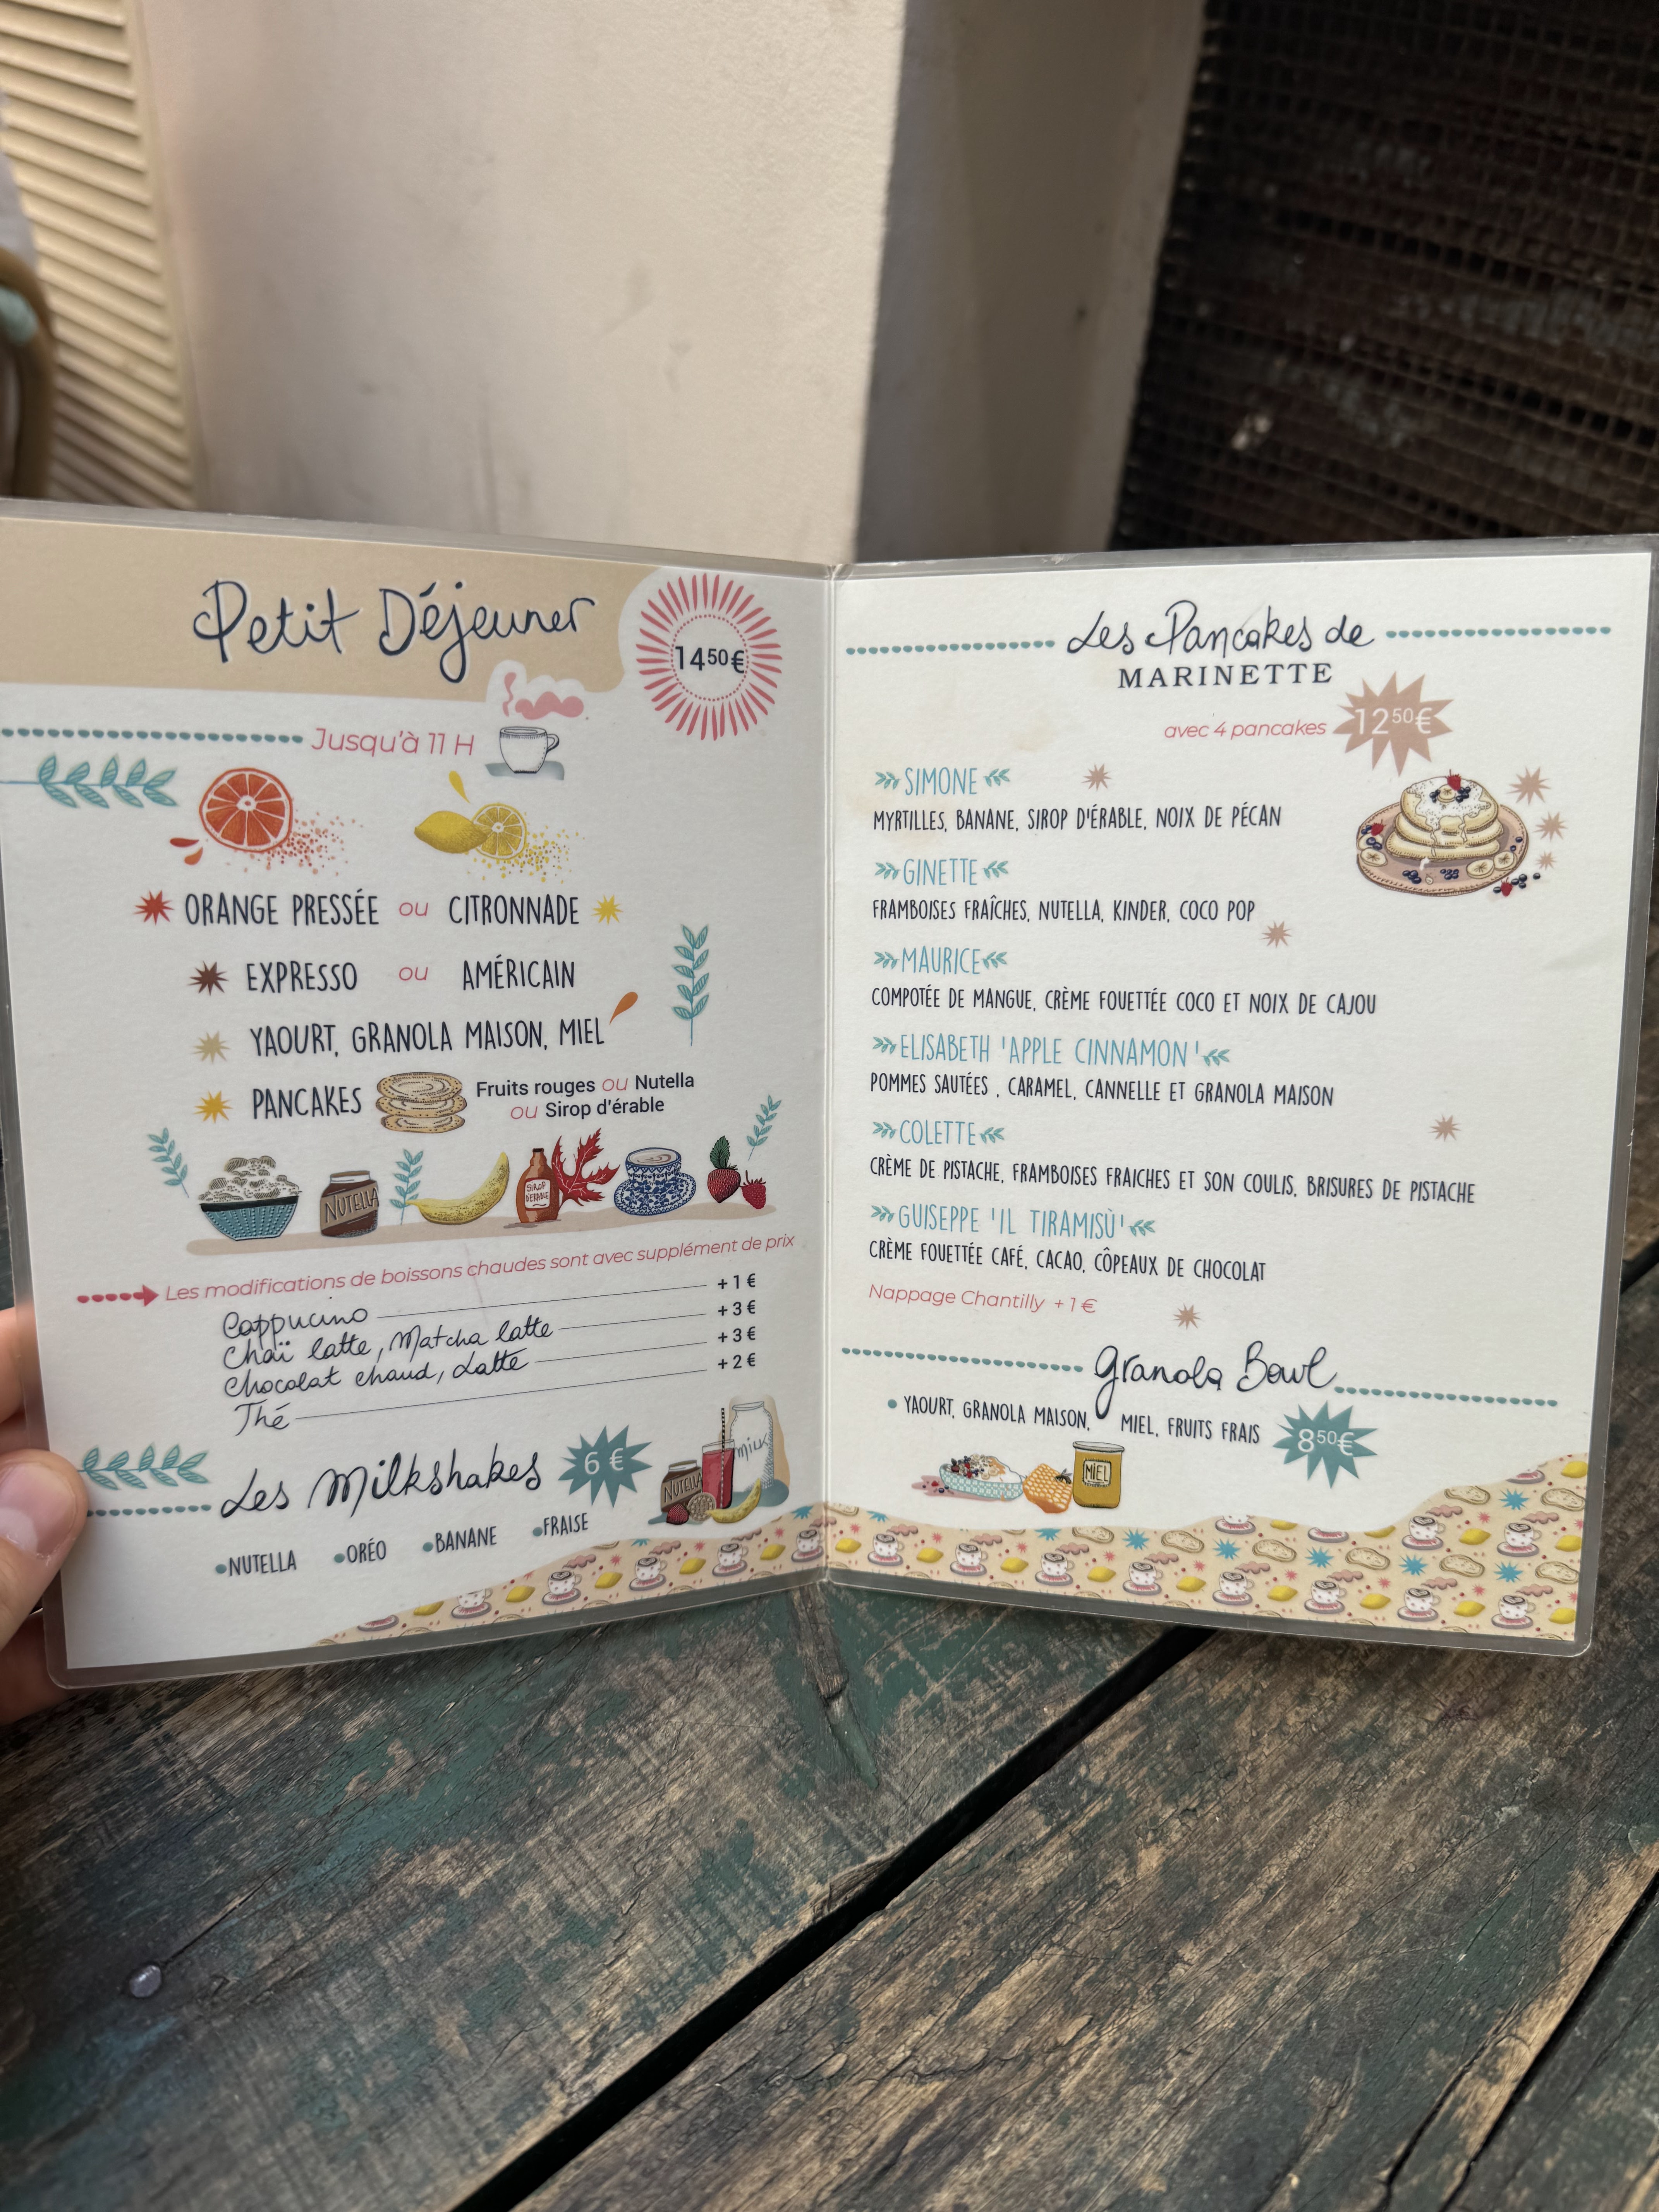 Petit Déjeuner
14⁵⁰€
Jusqu'à 11 H
ORANGE PRESSÉE ou CITRONNADE
EXPRESSO ou AMÉRICAIN
YAOURT, GRANOLA MAISON, MIEL
PANCAKES
Fruits rouges ou Nutella
ou Sirop d'érable
NUTELLA
SIROP
D'ERABLE
Les modifications de boissons chaudes sont avec supplément de prix
Cappucino +1 €
Chaï latte, Matcha latte +3 €
Chocolat chaud, Latte +3 €
Thé +2 €
Les Milkshakes 6 €
milk
NUTELLA
•NUTELLA •ORÉO •BANANE •FRAISE
Les Pancakes de
MARINETTE
avec 4 pancakes 12⁵⁰€
SIMONE
MYRTILLES, BANANE, SIROP D'ÉRABLE, NOIX DE PÉCAN
GINETTE
FRAMBOISES FRAÎCHES, NUTELLA, KINDER, COCO POP
MAURICE
COMPOTÉE DE MANGUE, CRÈME FOUETTÉE COCO ET NOIX DE CAJOU
ELISABETH 'APPLE CINNAMON'
POMMES SAUTÉES , CARAMEL, CANNELLE ET GRANOLA MAISON
COLETTE
CRÈME DE PISTACHE, FRAMBOISES FRAICHES ET SON COULIS, BRISURES DE PISTACHE
GUISEPPE 'IL TIRAMISÙ'
CRÈME FOUETTÉE CAFÉ, CACAO, CÔPEAUX DE CHOCOLAT
Nappage Chantilly +1 €
Granola Bowl
• YAOURT, GRANOLA MAISON, MIEL, FRUITS FRAIS 8⁵⁰€
MIEL